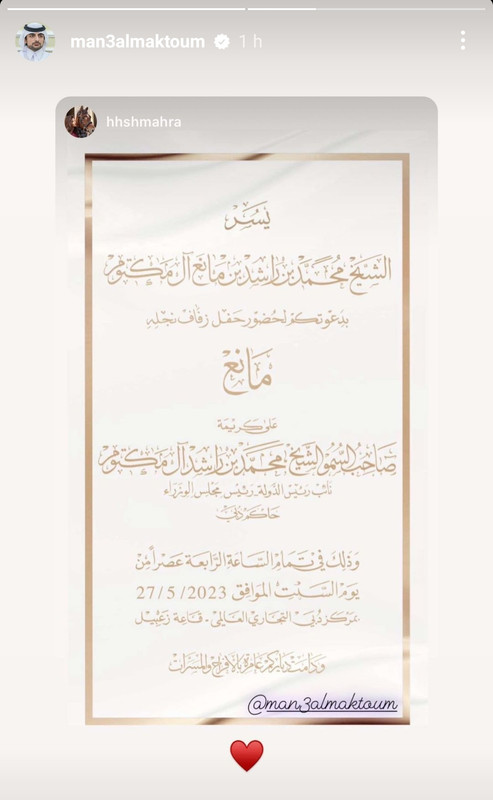 man3almaktoum 1 h
hhshmahra
يَسُر
الشيخ محمد بن راشد بن مانع آل مكتوم
بدعوتكم لحضور حفل زفاف نجله
مانع
على كريمة
صاحب السمو الشيخ محمد بن راشد آل مكتوم
نائب رئيس الدولة رئيس مجلس الوزراء
حاكم دبي
وذلك في تمام الساعة الرابعة عصراً من
يوم السبت الموافق 27/5/2023
بمركز دبي التجاري العالمي - قاعة زعبيل
ودامت دياركم عامرة بالأفراح والمسرات
@man3almaktoum